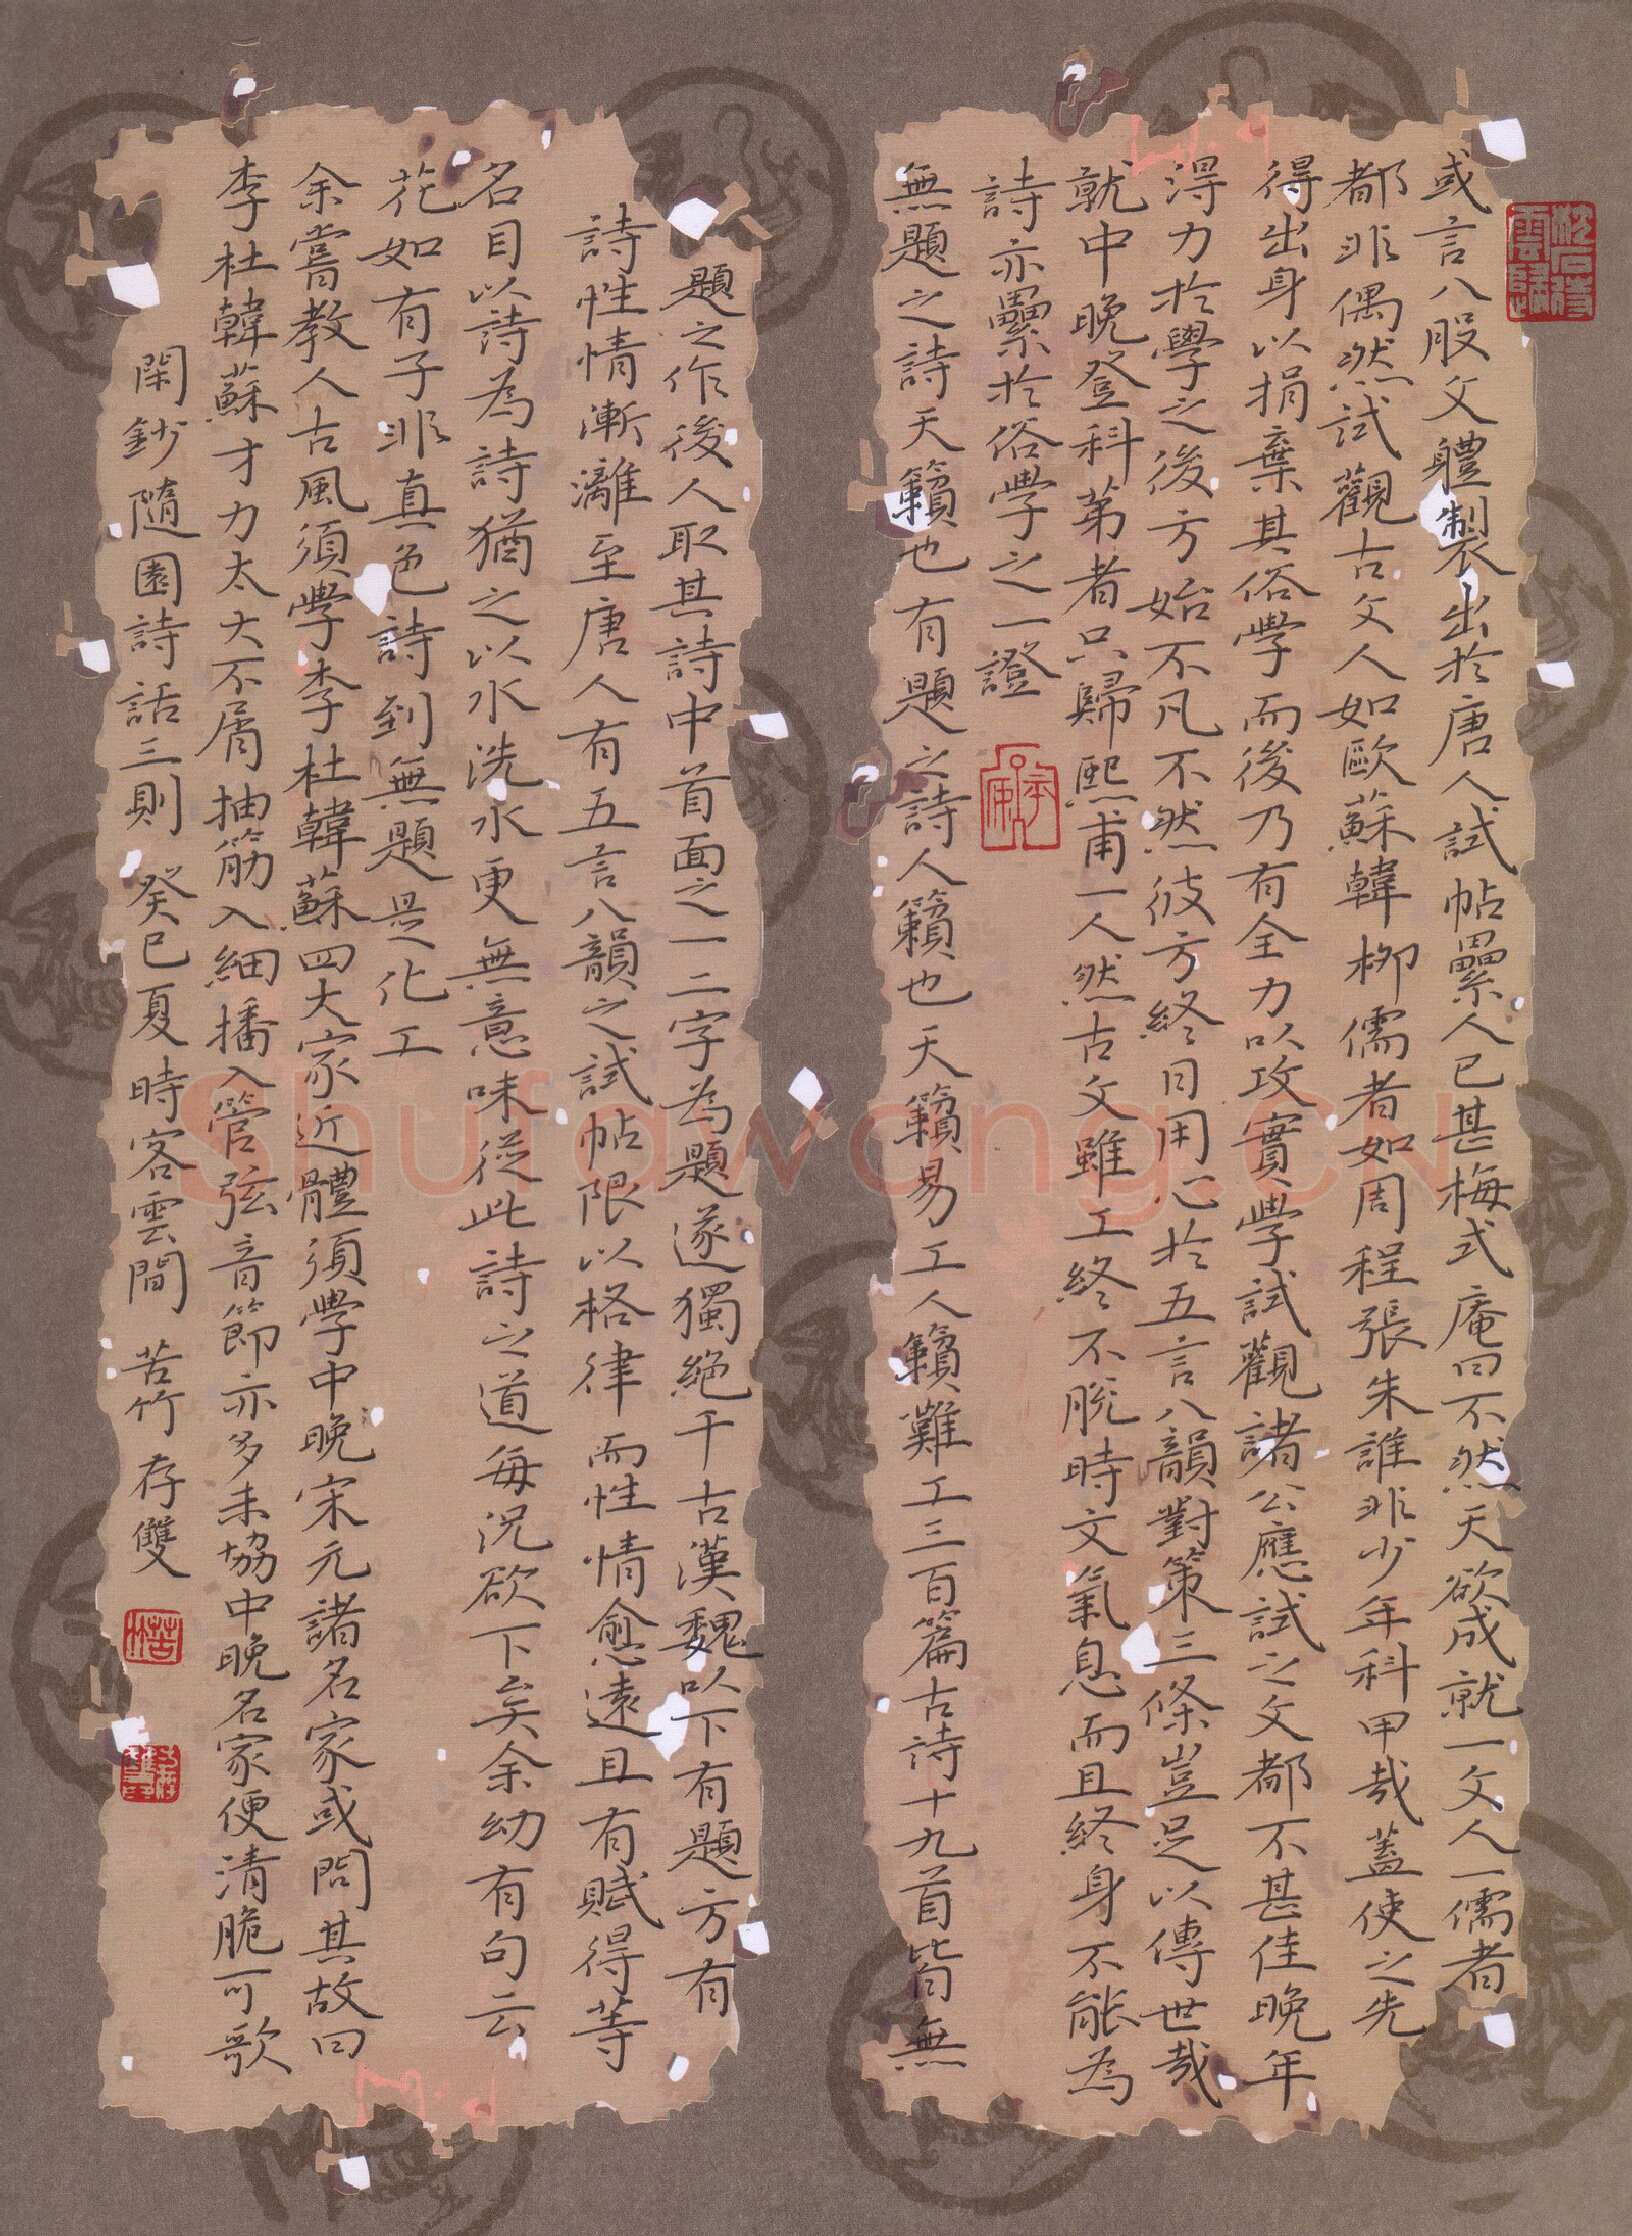 或言八股文體製出於唐人試帖累人已甚梅式庵曰不然天欲成就一文人一儒者
都非偶然試觀古文人如歐蘇韓柳儒者如周程張朱誰非少年科甲哉蓋使之先
得出身以捐棄其俗學而後乃有全力以攻實學試觀諸公應試之文都不甚佳晚年
得力於學之後方始不凡不然彼方終日用心於五言八韻對策三條豈足以傳世哉
就中晚登科第者只歸熙甫一人然古文雖工終不脫時文氣息而且終身不能為
詩亦累於俗學之一證
無題之詩天籟也有題之詩人籟也天籟易工人籟難工三百篇古詩十九首皆無
題之作後人取其詩中首面之一二字為題遂獨絕千古漢魏以下有題方有
詩性情漸漓至唐人有五言八韻之試帖限以格律而性情愈遠且有賦得等
名目以詩為詩猶之以水洗水更無意味從此詩之道每況欲下矣余幼有句云
花如有子非真色詩到無題是化工
余嘗教人古風須學李杜韓蘇四大家近體須學中晚宋元諸名家或問其故曰
李杜韓蘇才力太大不屑抽筋入細播入管弦音節亦多未協中晚名家便清脆可歌
閑鈔隨園詩話三則 癸巳夏時客雲間 苦竹 存雙
苦竹
Shufawang.CN